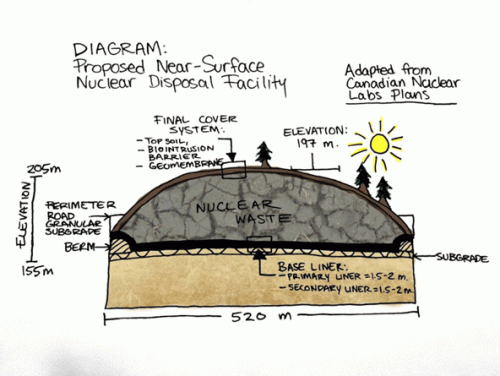 DIAGRAM:
Proposed Near-Surface
Nuclear Disposal Facility
Adapted from
Canadian Nuclear
Labs Plans
FINAL COVER
SYSTEM:
- TOP SOIL,
- BIOINTRUSION
BARRIER
- GEOMEMBRANE
ELEVATION:
197 m.
205m
ELEVATION
155m
PERIMETER
ROAD
GRANULAR
SUBGRADE
BERM
NUCLEAR
WASTE
SUBGRADE
BASE LINER:
- PRIMARY LINER = 1.5-2 m.
- SECONDARY LINER = 1.5-2m
520 m